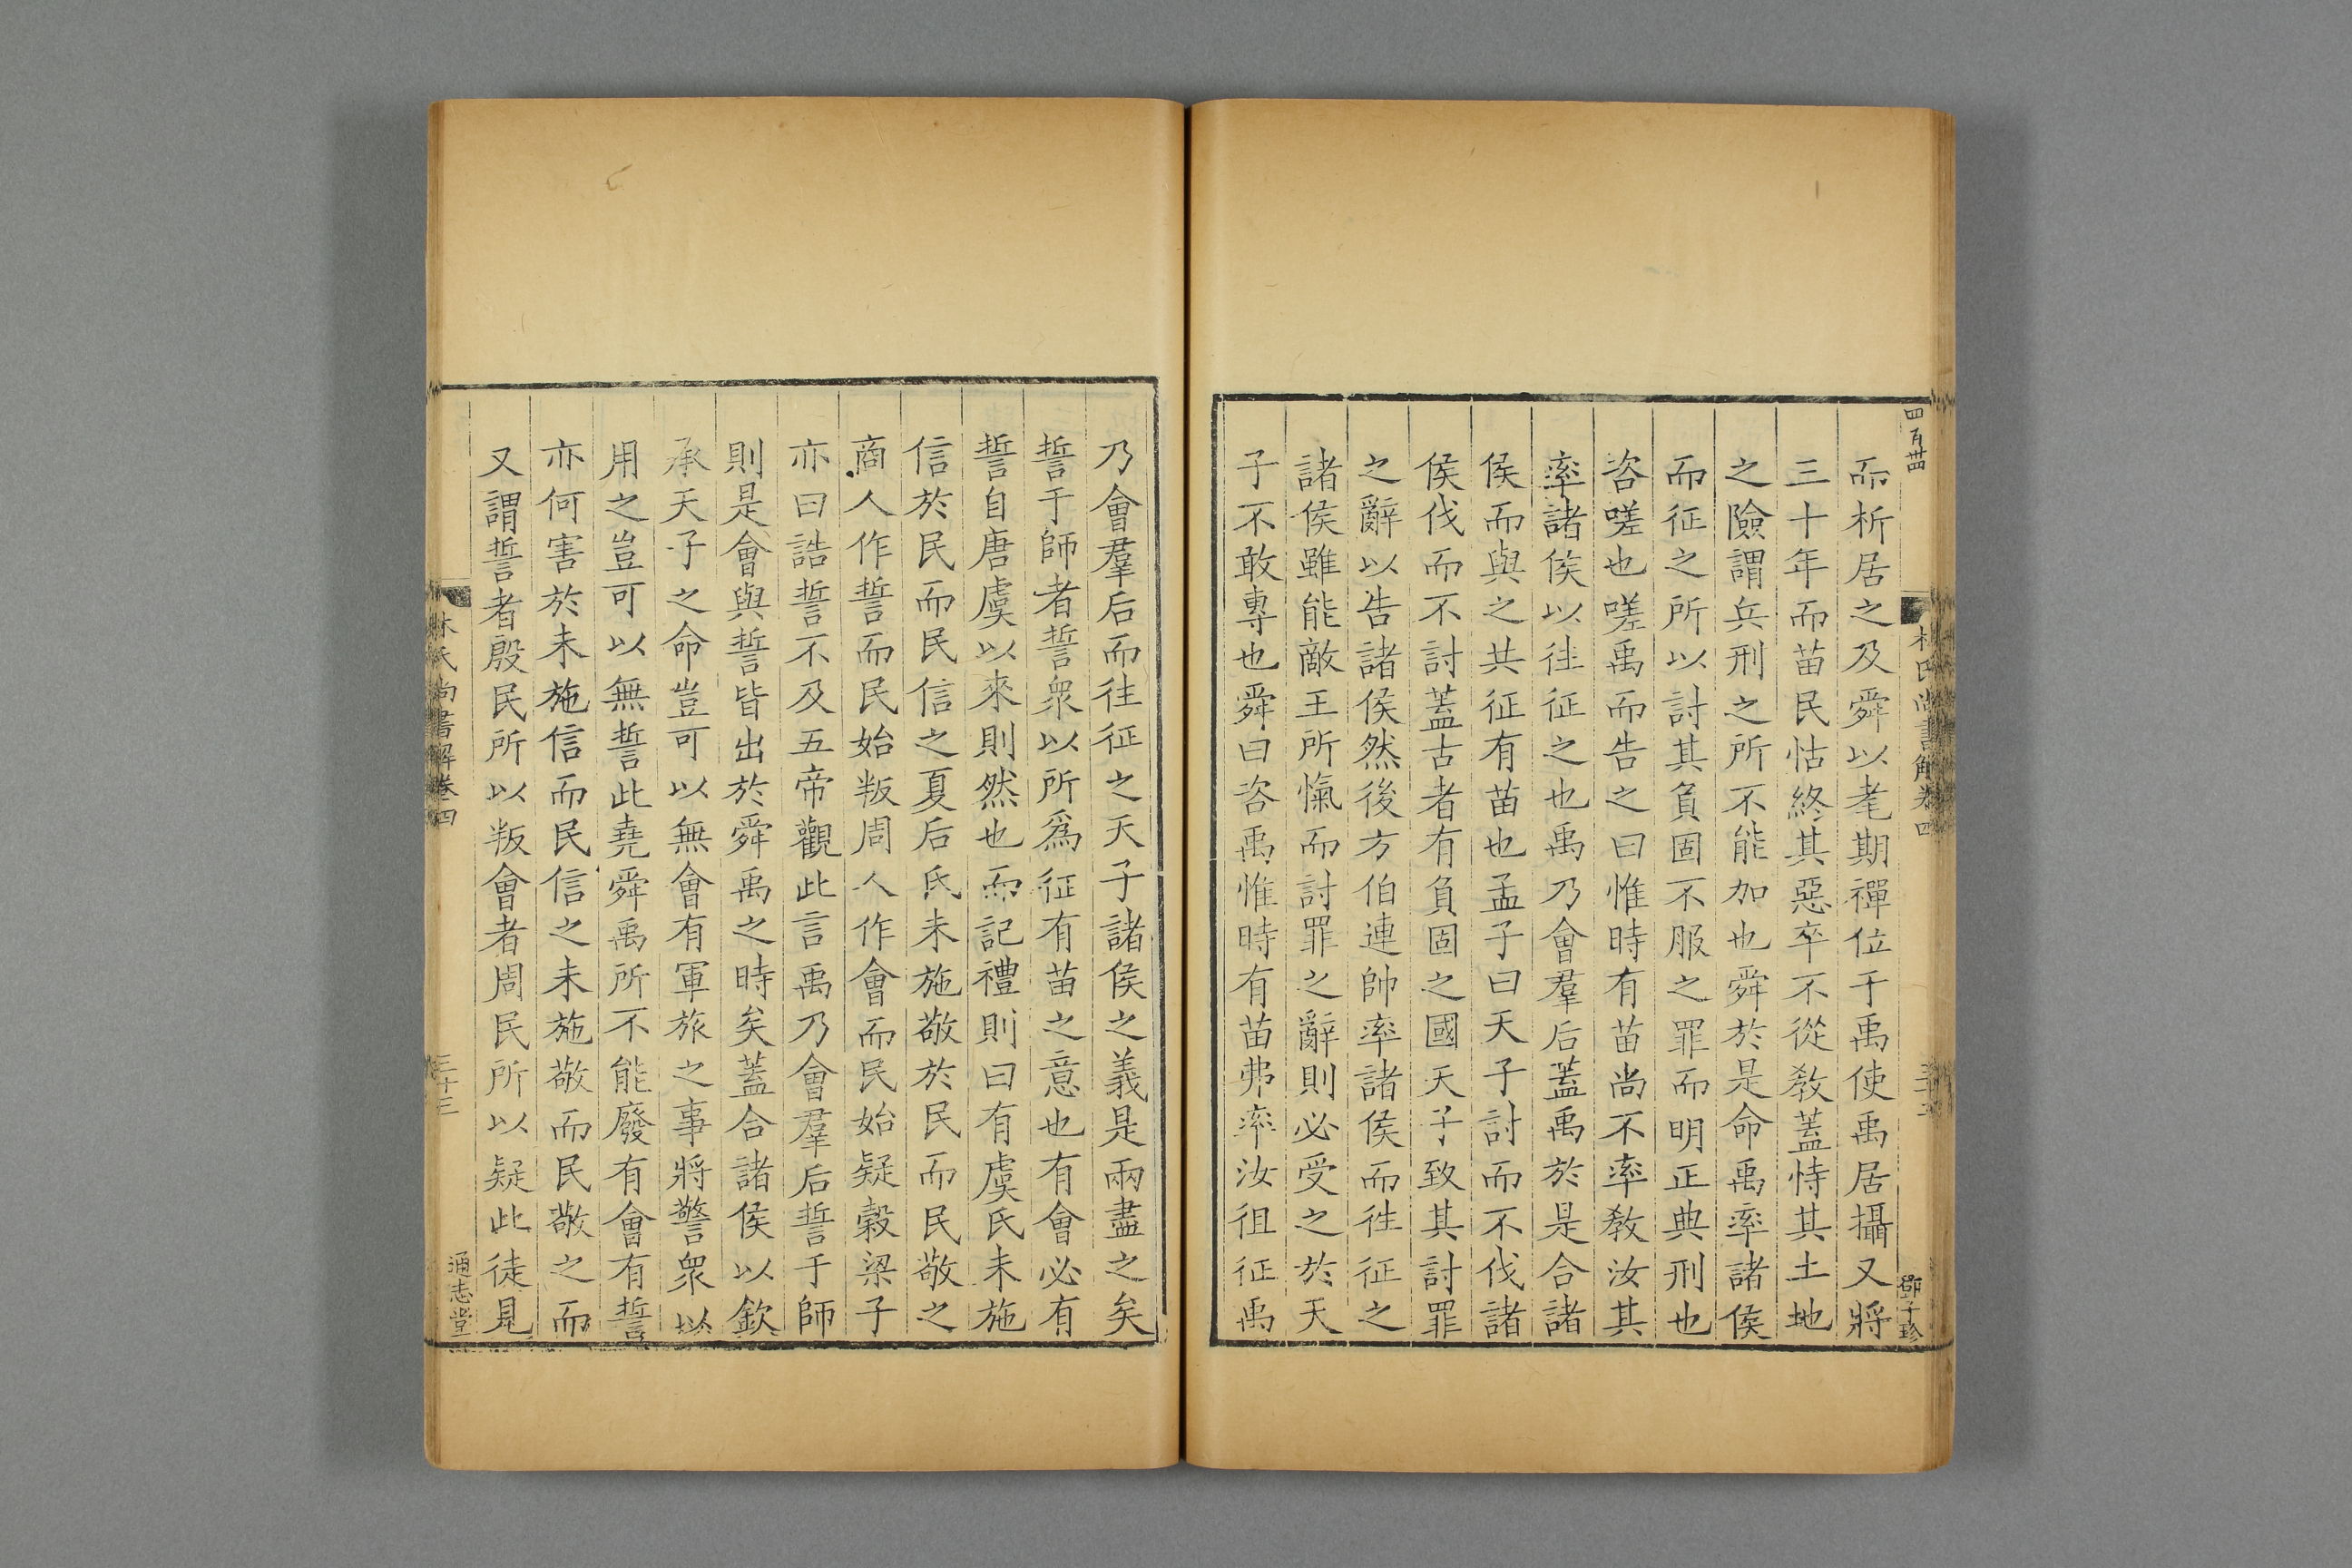 四百卌四
林氏尚書解卷四
三十二
鄧子珍
而析居之及舜以耄期禪位于禹使禹居攝又將
三十年而苗民怙終其惡卒不從教蓋恃其土地
之險謂兵刑之所不能加也舜於是命禹率諸侯
而征之所以討其負固不服之罪而明正典刑也
咨嗟也嗟禹而告之曰惟時有苗尚不率教汝其
率諸侯以往征之也禹乃會羣后蓋禹於是合諸
侯而與之共征有苗也孟子曰天子討而不伐諸
侯伐而不討蓋古者有負固之國天子致其討罪
之辭以告諸侯然後方伯連帥率諸侯而往征之
諸侯雖能敵王所愾而討罪之辭則必受之於天
子不敢專也舜曰咨禹惟時有苗弗率汝徂征禹
乃會羣后而往征之天子諸侯之義是兩盡之矣
誓于師者誓衆以所爲征有苗之意也有會必有
誓自唐虞以來則然也而記禮則曰有虞氏未施
信於民而民信之夏后氏未施敬於民而民敬之
商人作誓而民始叛周人作會而民始疑穀梁子
亦曰誥誓不及五帝觀此言禹乃會羣后誓于師
則是會與誓皆出於舜禹之時矣蓋合諸侯以欽
承天子之命豈可以無會有軍旅之事將警衆以
用之豈可以無誓此堯舜禹所不能廢有會有誓
亦何害於未施信而民信之未施敬而民敬之而
又謂誓者殷民所以叛會者周民所以疑此徒見
林氏尚書解卷四
三十三
通志堂